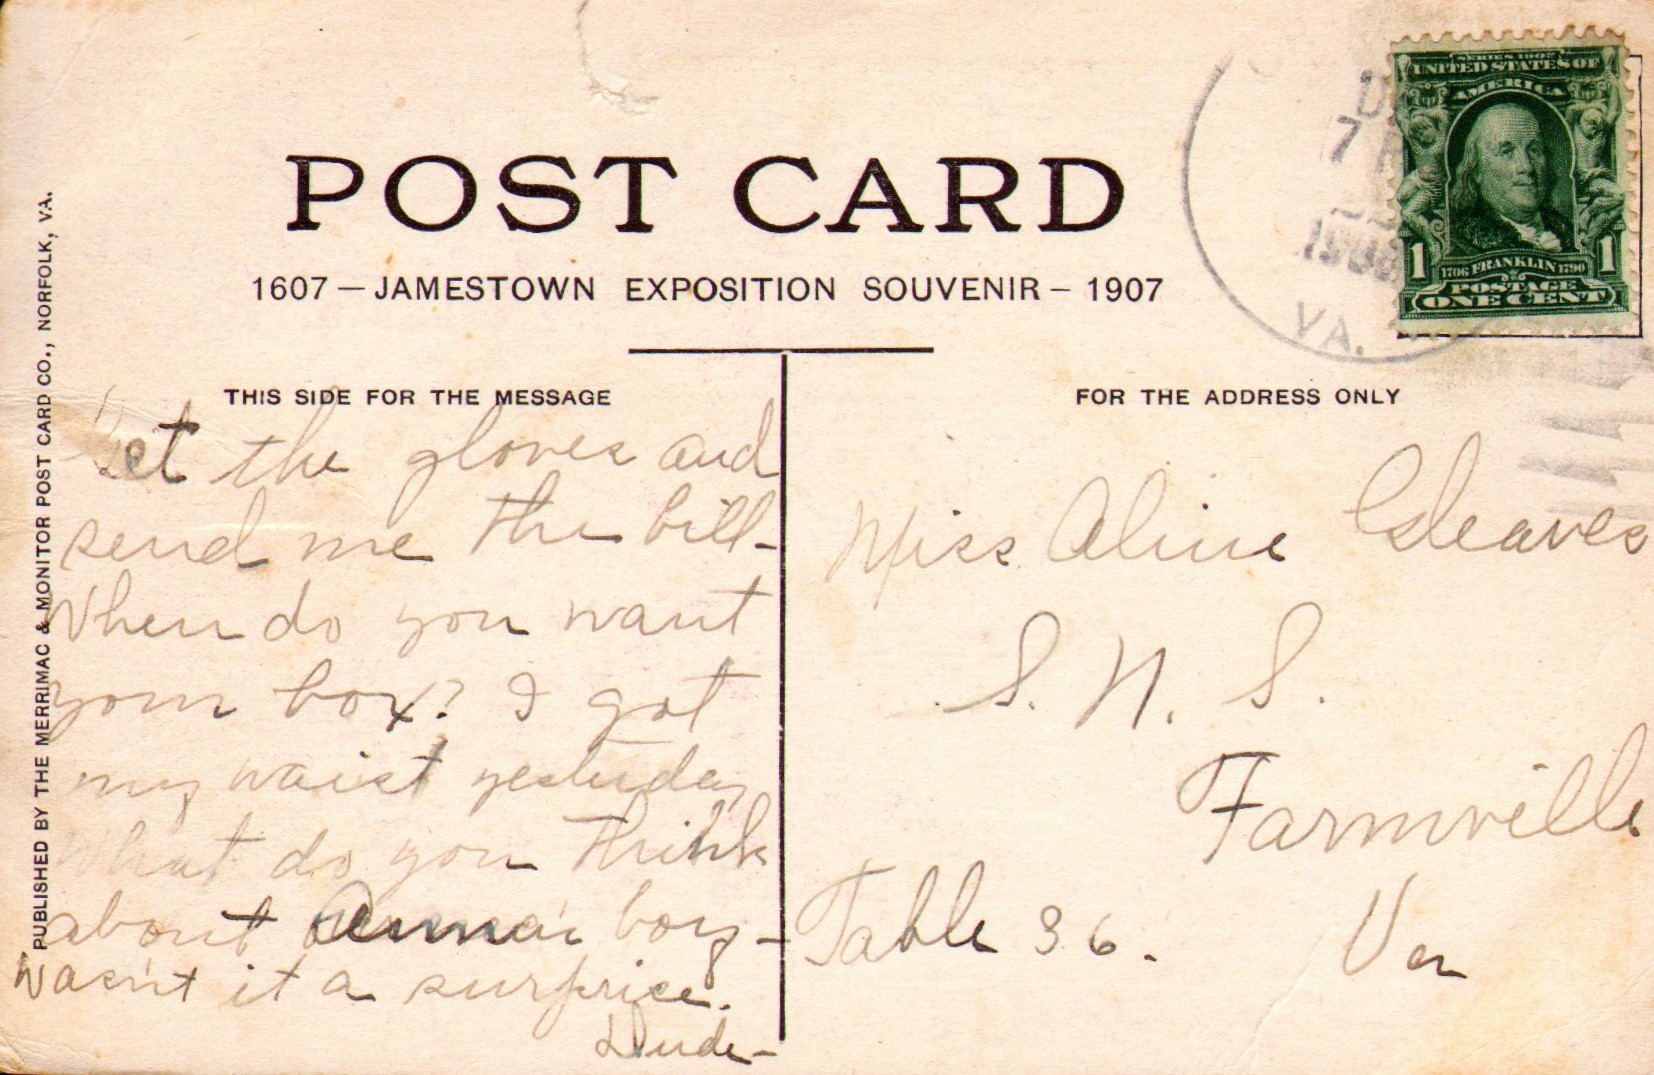 POST CARD
1607 — JAMESTOWN EXPOSITION SOUVENIR — 1907
PUBLISHED BY THE MERRIMAC & MONITOR POST CARD CO., NORFOLK, VA.
SERIES 1902
UNITED STATES OF
AMERICA
1 1
1706 FRANKLIN 1790
POSTAGE
ONE CENT
D
7
VA.
THIS SIDE FOR THE MESSAGE
Get the gloves and
send me the bill-
When do you want
your box? I got
my waist yesterday
What do you think
about Anna's boy-
Wasn't it a surprise.
Dude-
FOR THE ADDRESS ONLY
Miss Aline Gleaves
S. N. S.
Farmville
Table 36. Va